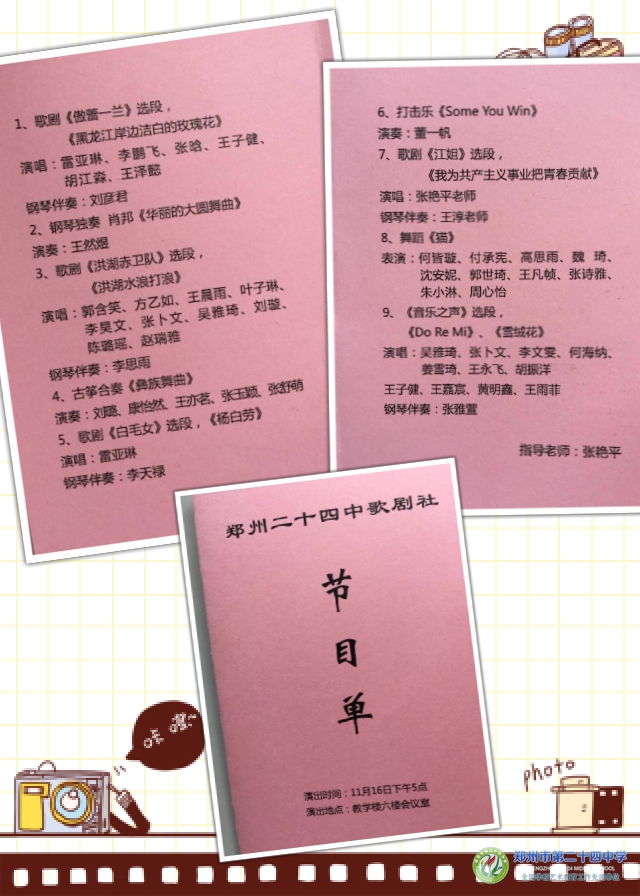 1、歌剧《傲蕾一兰》选段，
《黑龙江岸边洁白的玫瑰花》
演唱：雷亚琳、李鹏飞、张晗、王子健、
胡江淼、王泽懿
钢琴伴奏：刘彦君
2、钢琴独奏 肖邦《华丽的大圆舞曲》
演奏：王然煜
3、歌剧《洪湖赤卫队》选段，
《洪湖水浪打浪》
演唱：郭含笑、方乙如、王晨雨、叶子琳、
李昊文、张卜文、吴雅琦、刘璇、
陈璐瑶、赵瑞雅
钢琴伴奏：李思雨
4、古筝合奏《彝族舞曲》
演奏：刘璐、康怡然、王亦茗、张玉颖、张舒萌
5、歌剧《白毛女》选段，《杨白劳》
演唱：雷亚琳
钢琴伴奏：李天禄
6、打击乐《Some You Win》
演奏：董一帆
7、歌剧《江姐》选段，
《我为共产主义事业把青春贡献》
演唱：张艳平老师
钢琴伴奏：王淳老师
8、舞蹈《猫》
表演：何皆璇、付承宪、高思雨、魏 琦、
沈安妮、郭世琦、王凡帧、张诗雅、
朱小淋、周心怡
9、《音乐之声》选段，
《Do Re Mi》、《雪绒花》
演唱：吴雅琦、张卜文、李文雯、何海纳、
姜雪琦、王永飞、胡振洋
王子健、王嘉宸、黄明鑫、王雨菲
钢琴伴奏：张雅萱
指导老师：张艳平
郑州二十四中歌剧社
节
目
单
演出时间：11月16日下午5点
演出地点：教学楼六楼会议室
咔嚓~
photo
郑州市第二十四中学